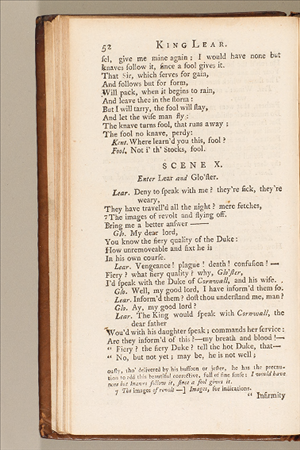 52 KING LEAR.
sel, give me mine again; I would have none but
knaves follow it, since a fool gives it.
That Sir, which serves for gain,
And follows but for form,
Will pack, when it begins to rain,
And leave thee in the storm:
But I will tarry, the fool will stay,
And let the wise man fly:
The knave turns fool, that runs away;
The fool no knave, perdy:
Kent. Where learn'd you this, fool?
Fool. Not i' th' Stocks, fool.
SCENE X.
Enter Lear and Glo'ster.
Lear. Deny to speak with me? they're sick, they're
weary,
They have travell'd all the night? mere fetches,
7 The images of revolt and flying off.
Bring me a better answer ——
Glo. My dear lord,
You know the fiery quality of the Duke:
How unremoveable and fixt he is
In his own course.
Lear. Vengeance! plague! death! confusion! —
Fiery? what fiery quality? why, Glo'ster,
I'd speak with the Duke of Cornwall, and his wife.
Glo. Well, my good lord, I have inform'd them so.
Lear. Inform'd them? dost thou understand me, man?
Glo. Ay, my good lord?
Lear. The King would speak with Cornwall, the
dear father
Wou'd with his daughter speak; commands her service:
Are they inform'd of this?—my breath and blood!—
" Fiery? the fiery Duke? tell the hot Duke, that—
" No, but not yet; may be, he is not well;
tho' delivered by his buffoon or jester, he has the precau-
tion to add this beautiful corrective, full of fine sense: I would have
none but knaves follow it, since a fool gives it.
7 The images of revolt —] Images, for indications.
" Infirmity